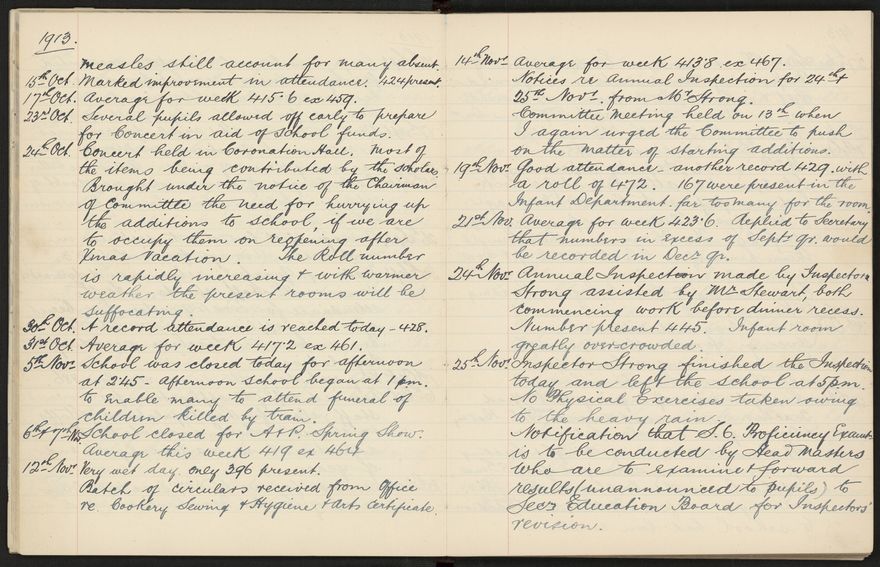 1913.
measles still account for many absent.
15th Oct. Marked improvement in attendance. 424 present.
17th Oct. Average for week 415.6 ex 459.
23rd Oct. Several pupils allowed off early to prepare
for Concert in aid of School funds.
24th Oct. Concert held in Coronation Hall. Most of
the items being contributed by the scholars.
Brought under the notice of the Chairman
of Committee the need for hurrying up
the additions to school, if we are
to occupy them on reopening after
Xmas Vacation. The Roll number
is rapidly increasing & with warmer
weather the present rooms will be
suffocating.
30th Oct. A record attendance is reached today - 428.
31st Oct. Average for week 417.2 ex 461.
5th Novr School was closed today for afternoon
at 2.45 - afternoon school began at 1 pm.
to enable many to attend funeral of
children killed by train.
6th & 7th Nov. School closed for A & P. Spring Show.
Average this week 419 ex 464
12th Novr Very wet day. only 396 present.
Batch of circulars received from Office
re. Cookery Sewing & Hygiene & Arts Certificate.
14th Novr Average for week 413.8 ex 467.
Notices re Annual Inspection for 24th &
25th Novr. from Mr Strong.
Committee Meeting held on 13th when
I again urged the Committee to push
on the matter of starting additions.
19th Novr Good attendance - another record 429. with
a roll of 472. 167 were present in the
Infant Department. far too many for the room
21st Nov. Average for week 423.6. Replied to Secretary
that numbers in excess of Septr qr. would
be recorded in Decr qr.
24th Novr Annual Inspection made by Inspector
Strong assisted by Mr Stewart, both
commencing work before dinner recess.
Number present 445. Infant room
greatly overcrowded
25th Novr Inspector Strong finished the Inspection
today and left the school at 5 pm.
No Physical Exercises taken owing
to the heavy rain.
Notification that S.6. Proficiency Examn
is to be conducted by Head Masters
who are to examine & forward
results (unannounced to pupils) to
Secr Education Board for Inspectors'
revision.